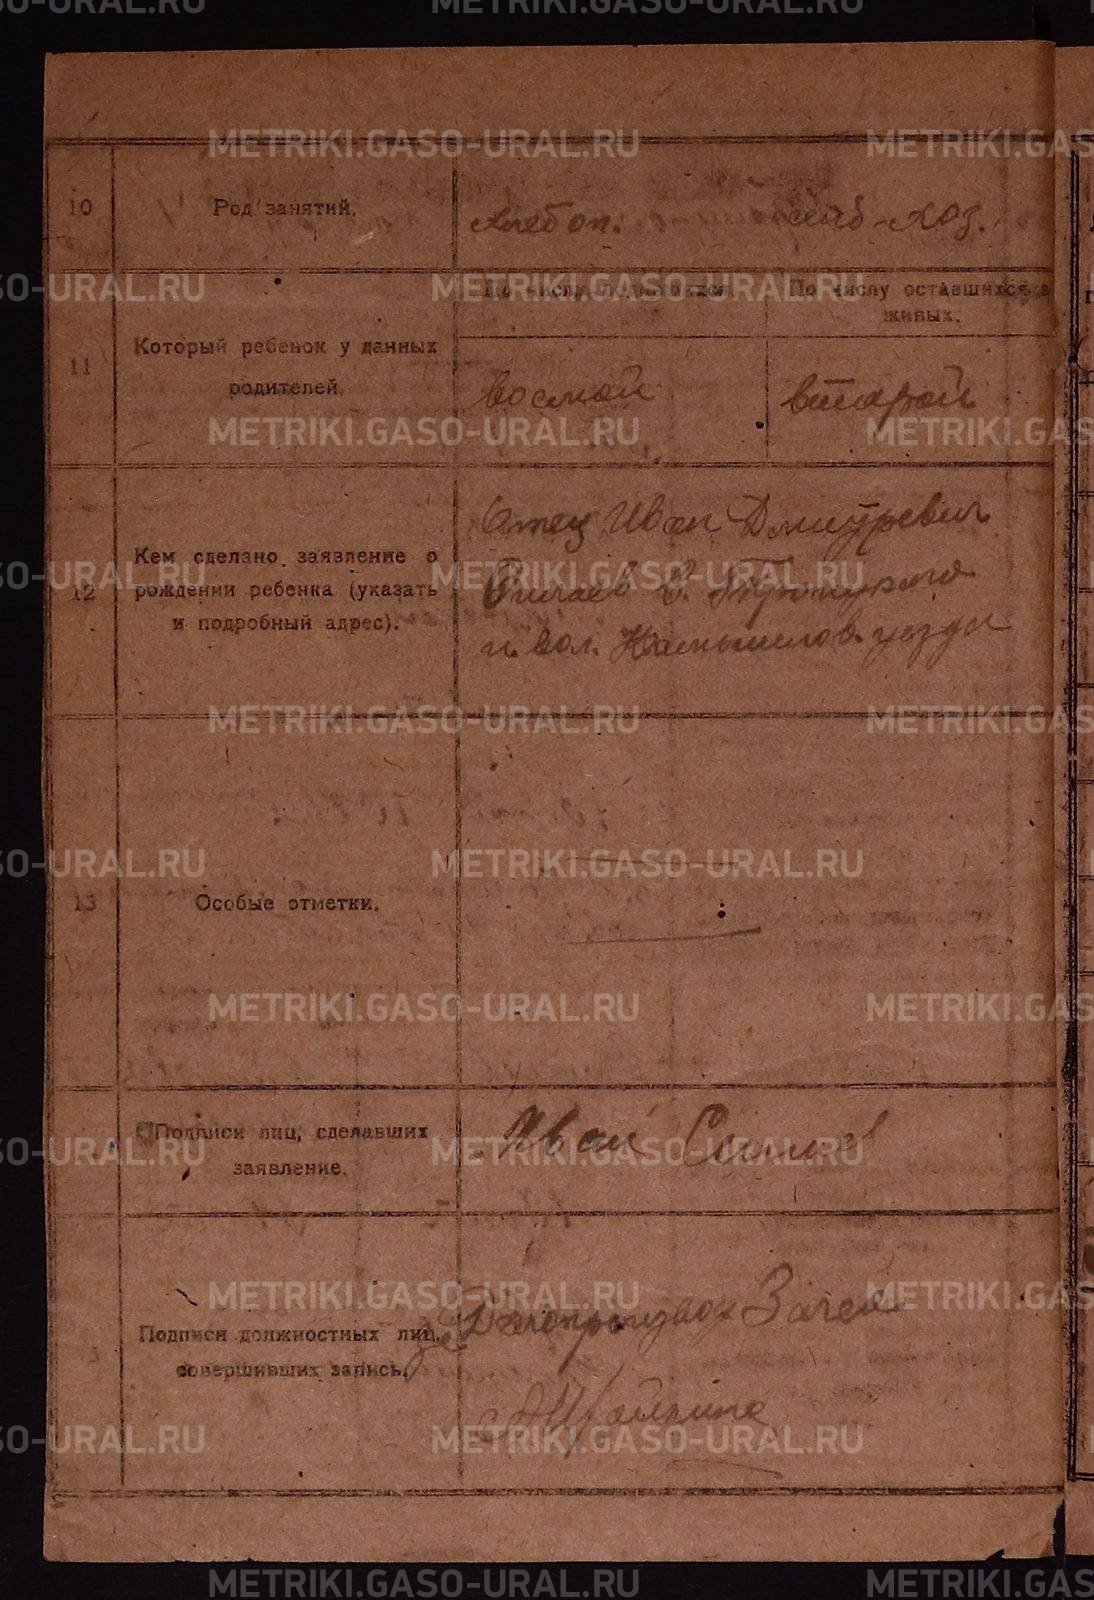 METRIKI.GASO-URAL.RU
10 Род занятий. хлебоп. хоз.
11 Который ребенок у данных родителей.
По числу родившихся. По числу оставшихся в живых.
восмой второй
12 Кем сделано заявление о рождении ребенка (указать и подробный адрес).
Отец Иван Дмитревич
с. Троицкого
и. вол. Камышлов. уезда
13 Особые отметки.
Подписи лиц, сделавших заявление.
Иван
Подписи должностных лиц, совершивших запись.
Делопроизвод